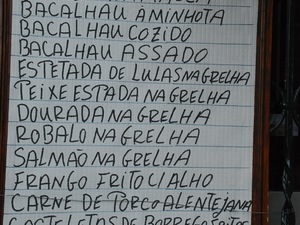 BACALHAU A MINHOTA
BACALHAU COZIDO
BACALHAU ASSADO
ESTETADA DE LULAS NA GRELHA
TEIXE ESTADA NA GRELHA
DOURADA NA GRELHA
ROBALO NA GRELHA
SALMÃO NA GRELHA
FRANGO FRITO C/ALHO
CARNE DE PORCO ALENTEJANA
COSTELETAS DE BORREGO